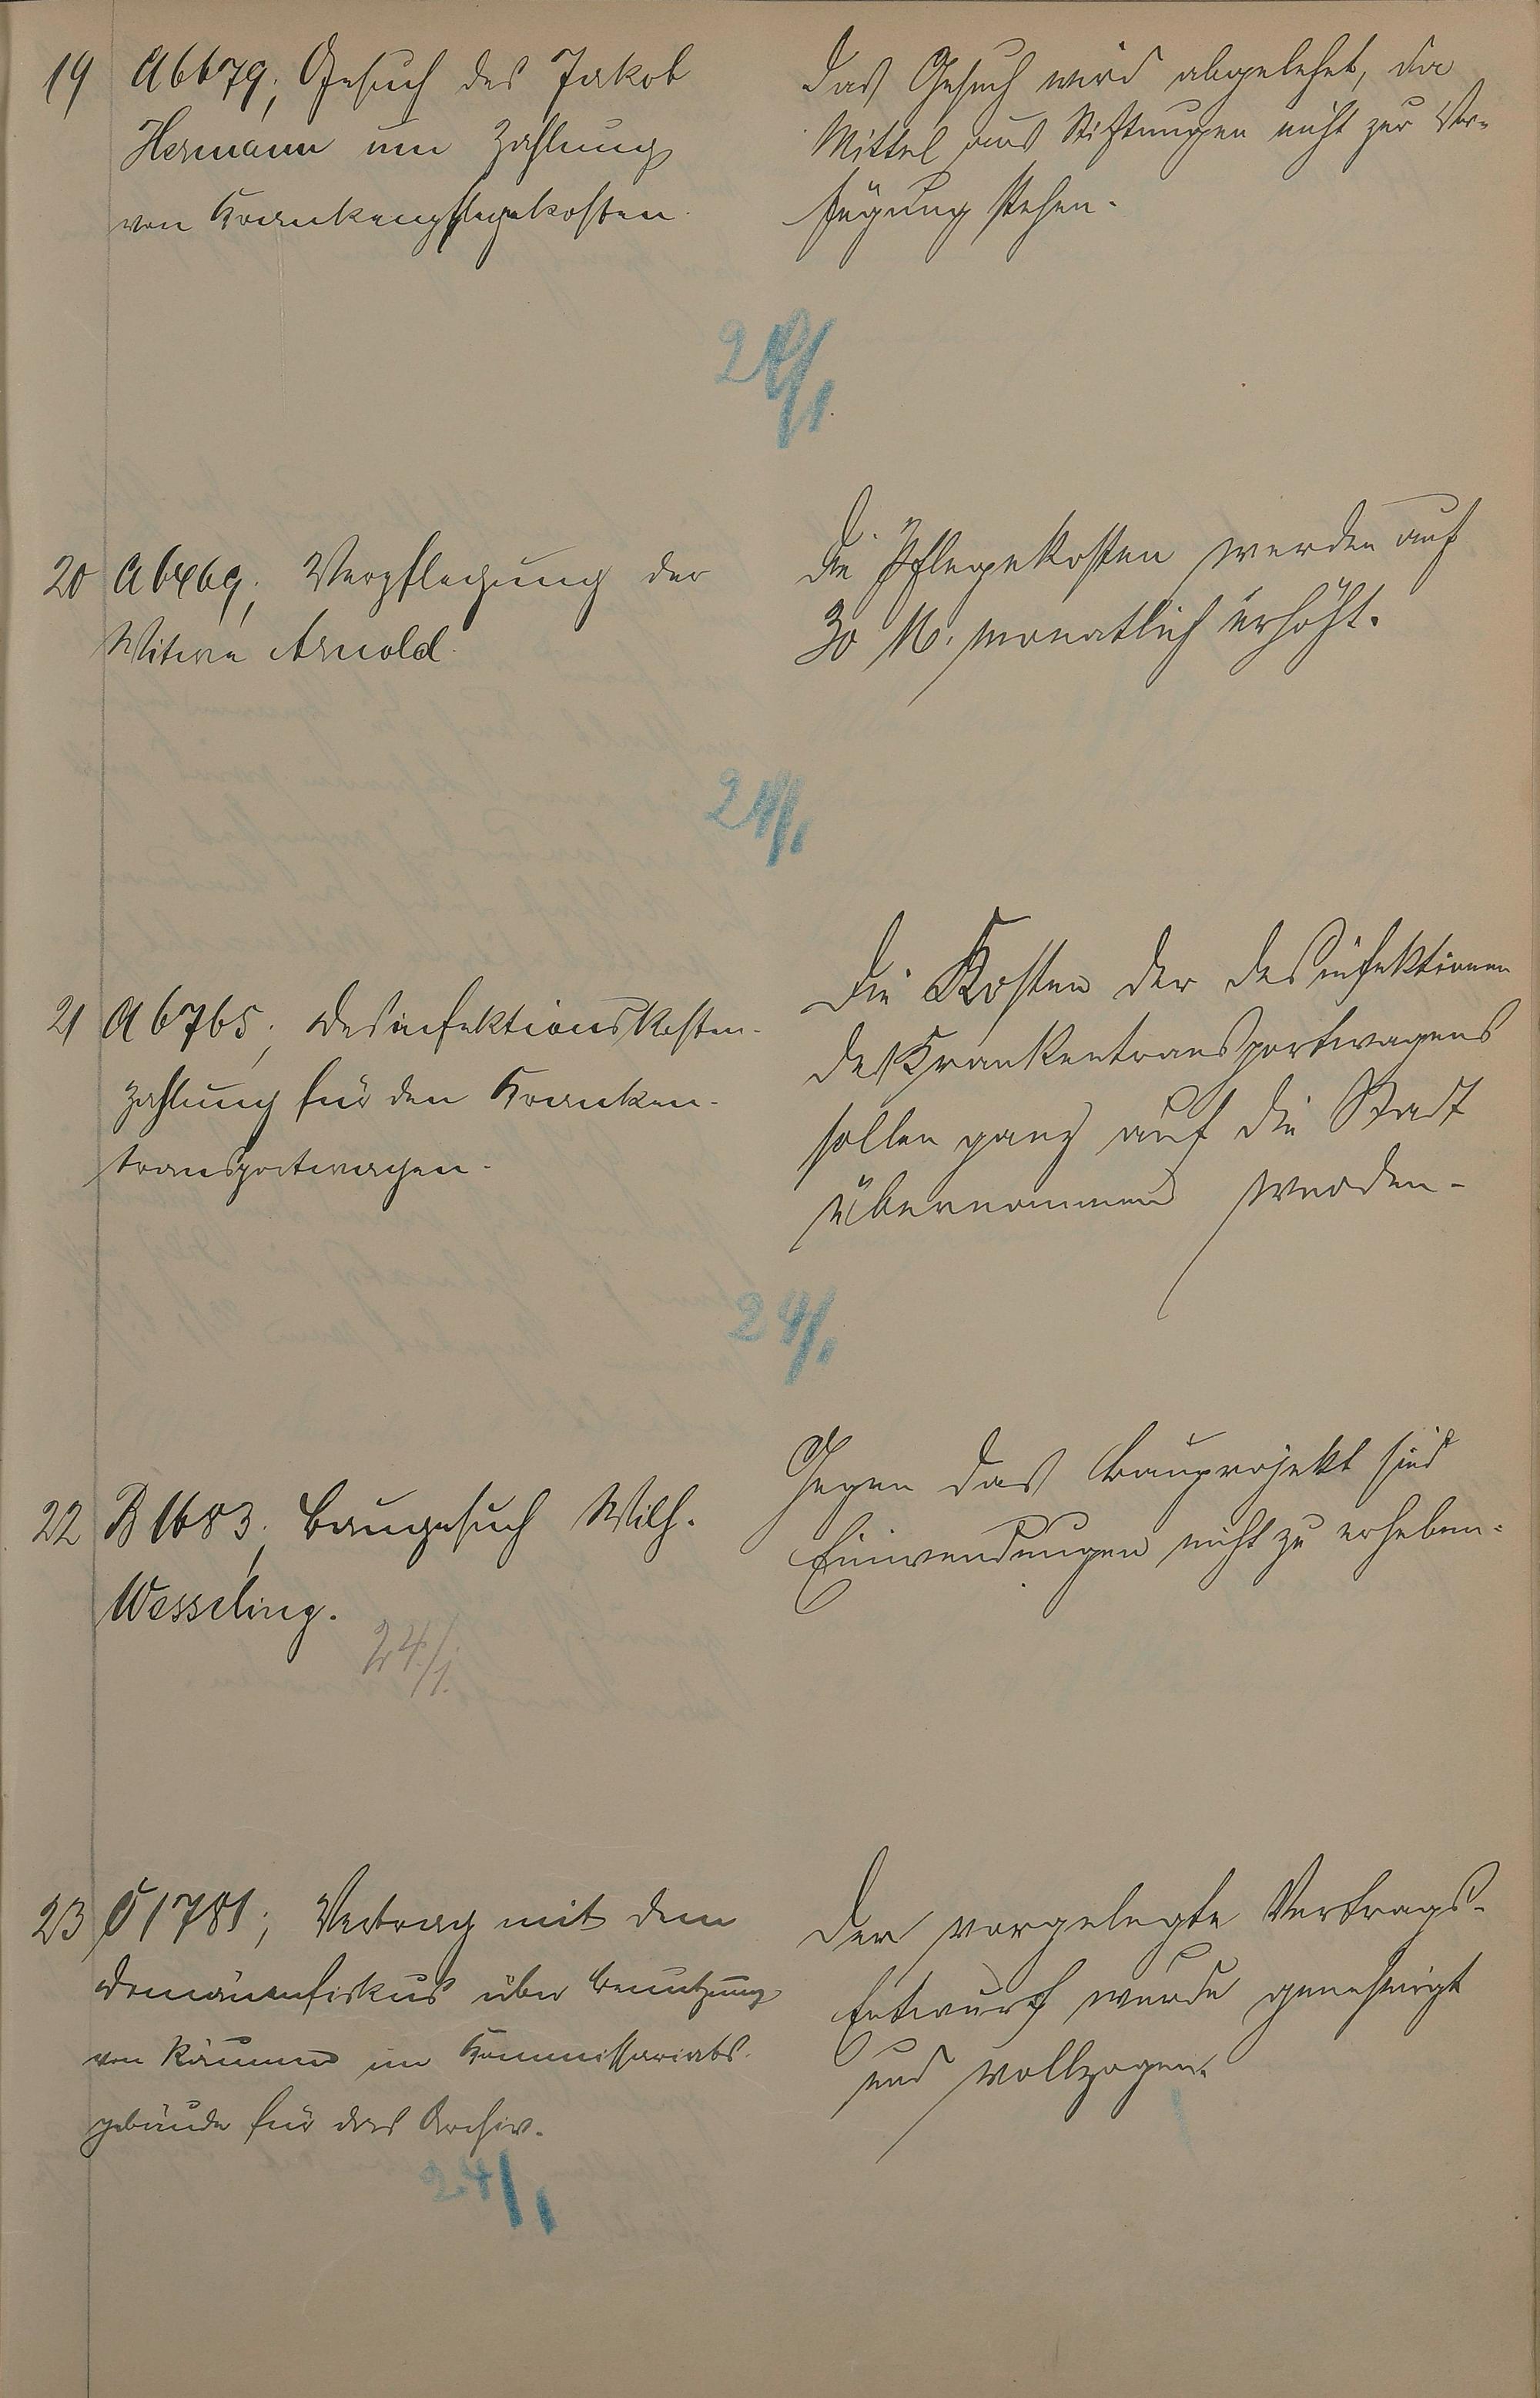 19 A 6679; Gesuch des Jakob
Hermann um Zahlung
von Krankenpflegekosten.
Das Gesuch wird abgelehnt, da
Mittel aus Stiftungen nicht zur Ver-
fügung stehen.
24/1.
20 A 6469; Verpflegung der
Witwe Arnold.
Die Pflegekosten werden auf
30 M. monatlich erhöht.
24/1
21 A 6765; Desinfektionskosten-
zahlung für den Kranken-
transportwagen.
Die Kosten der Desinfektionen
des Krankentransportwagens
sollen ganz auf die Stadt
übernommen werden.
24/1
22 B 1683; Baugesuch Wilh.
Wesseling.
Gegen das Bauprojekt sind
Einwendungen nicht zu erheben.
24./1.
23 C 1781; Vertrag mit dem
Domänenfiskus über Benutzung
von Räumen im Kommissariats-
gebäude für das Archiv.
Der vorgelegte Vertrags-
Entwurf wurde genehmigt
und vollzogen.
24/1